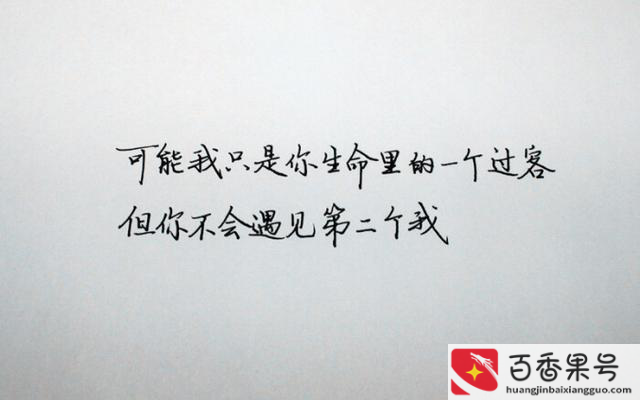 可能我只是你生命里的一个过客
但你不会遇见第二个我
百香果号
huangjinbaixiangguo.com